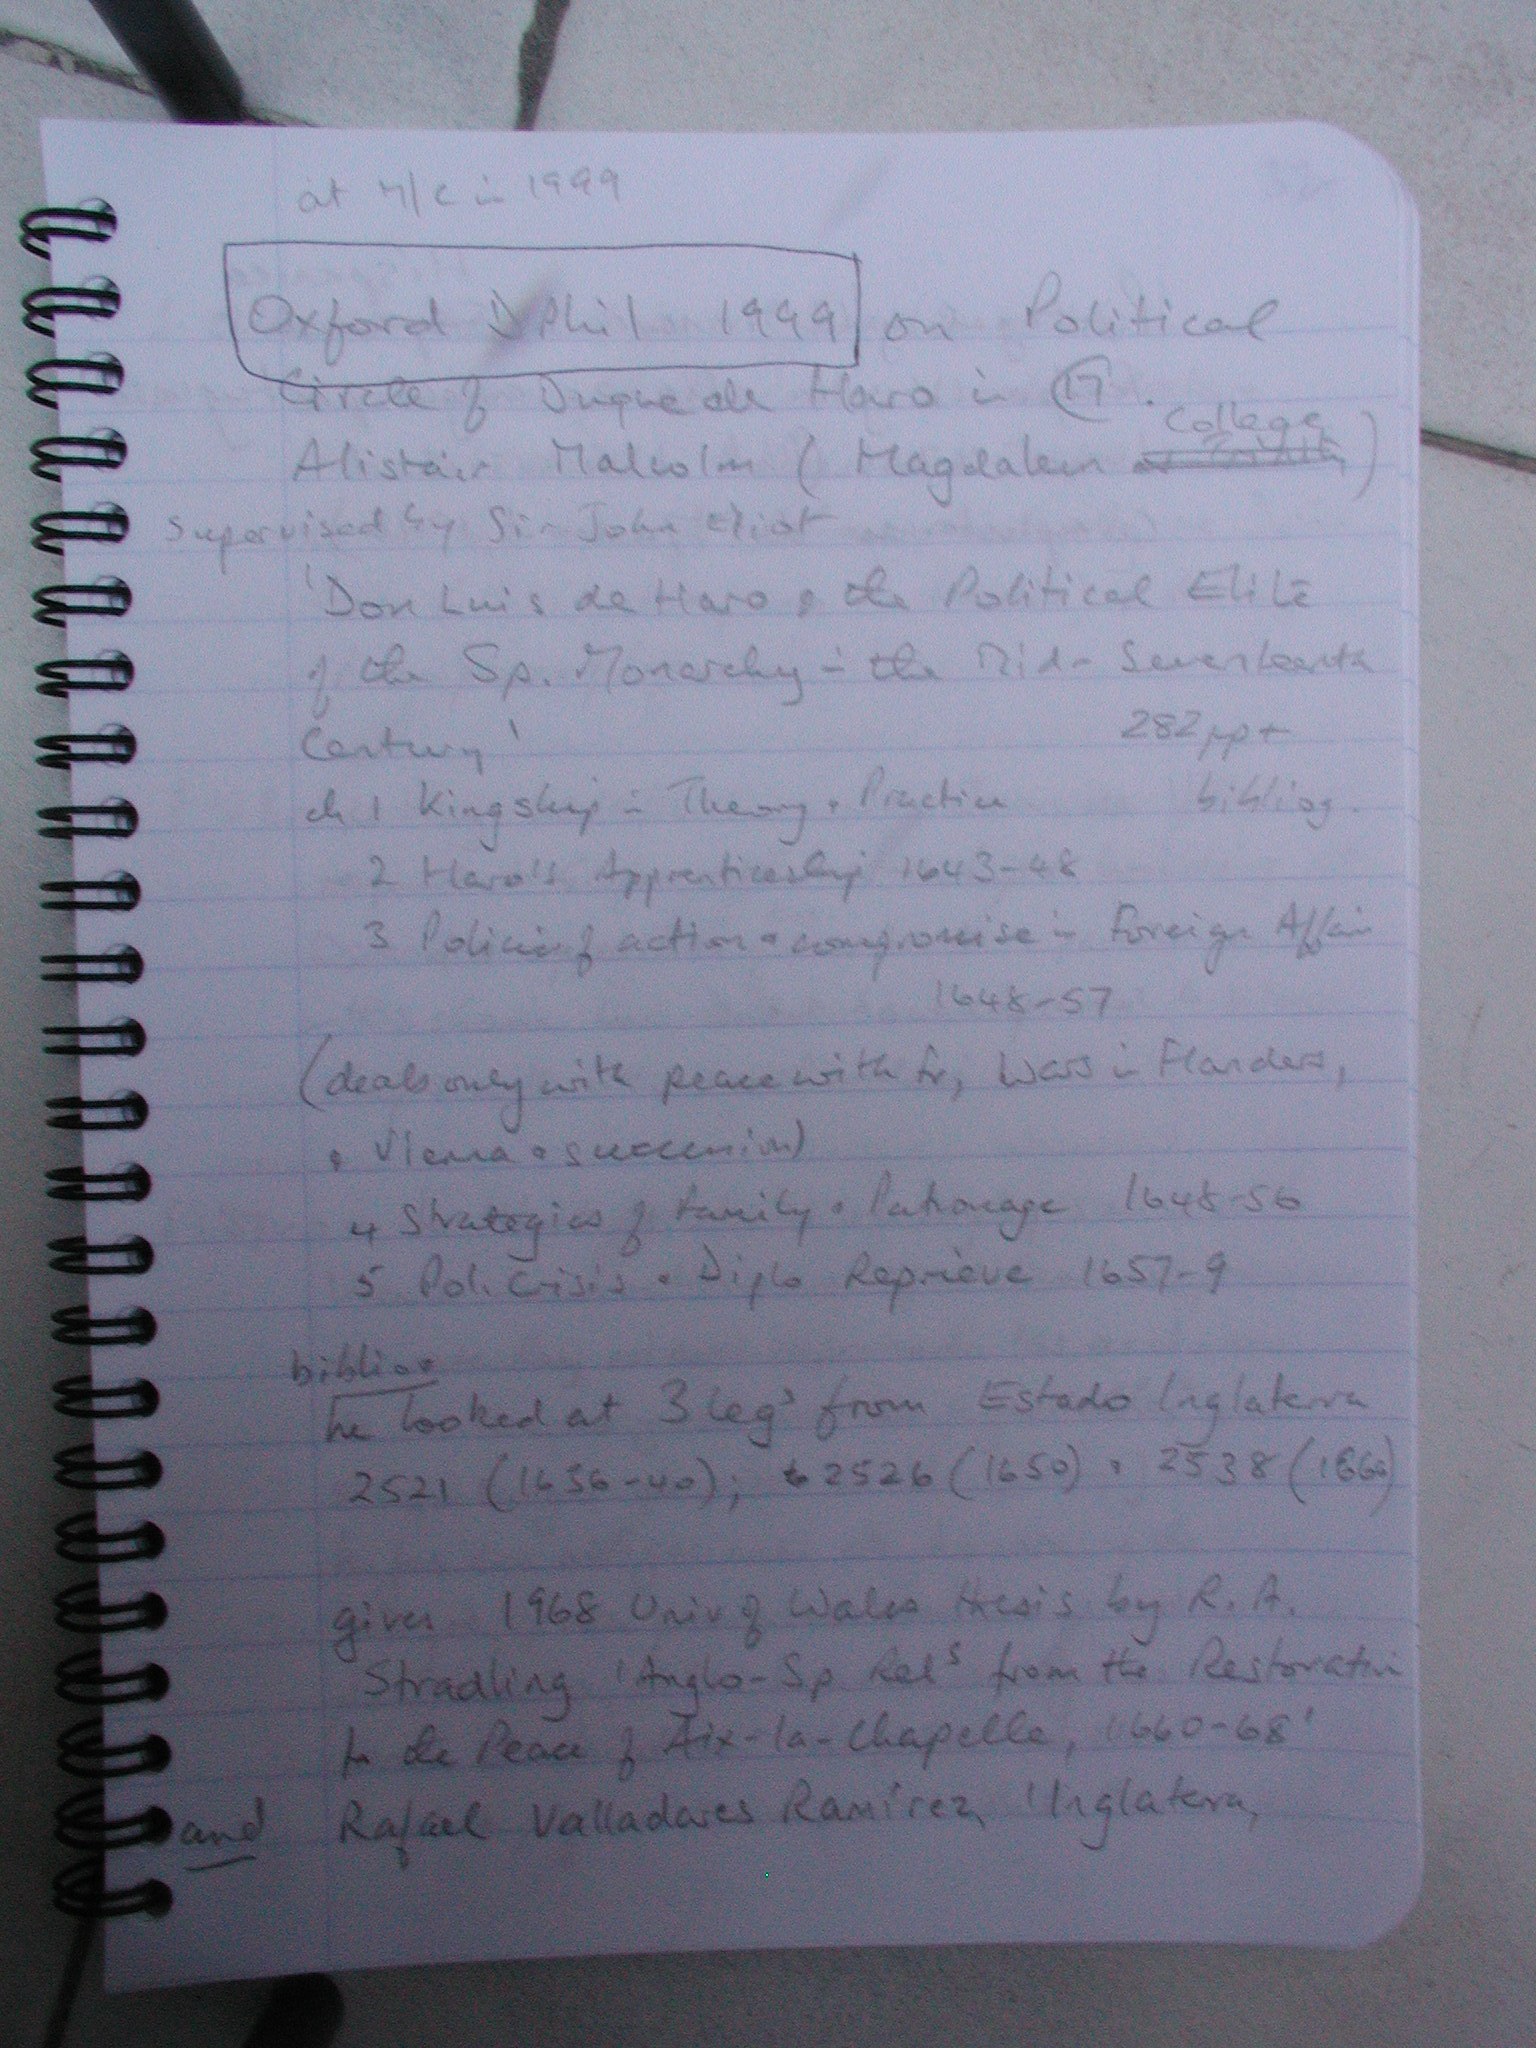 at M/C in 1999
Oxford DPhil 1999 on Political
Circle of Duque de Haro in C17.
College
Alistair Malcolm (Magdalen)
supervised by Sir John Eliot
'Don Luis de Haro & the Political Elite
of the Sp. Monarchy in the Mid-Seventeenth
Century'
282pp +
ch 1 Kingship in Theory & Practice
bibliog.
2 Haro's Apprenticeship 1643-48
3 Policies of action & compromise in Foreign Affairs
1648-57
(deals only with peace with Fr, Wars in Flanders,
& Vienna & succession)
4 Strategies of Family & Patronage 1648-56
5 Pol. Crisis & Diplo Reprieve 1657-9
bibliog
he looked at 3 legs from Estado Inglaterra
2521 (1636-40); 2526 (1650) & 2538 (1660)
gives 1968 Univ of Wales thesis by R. A.
Stradling 'Anglo-Sp Rels from the Restoration
to the Peace of Aix-la-Chapelle, 1660-68'
and Rafael Valladares Ramírez, 'Inglaterra,